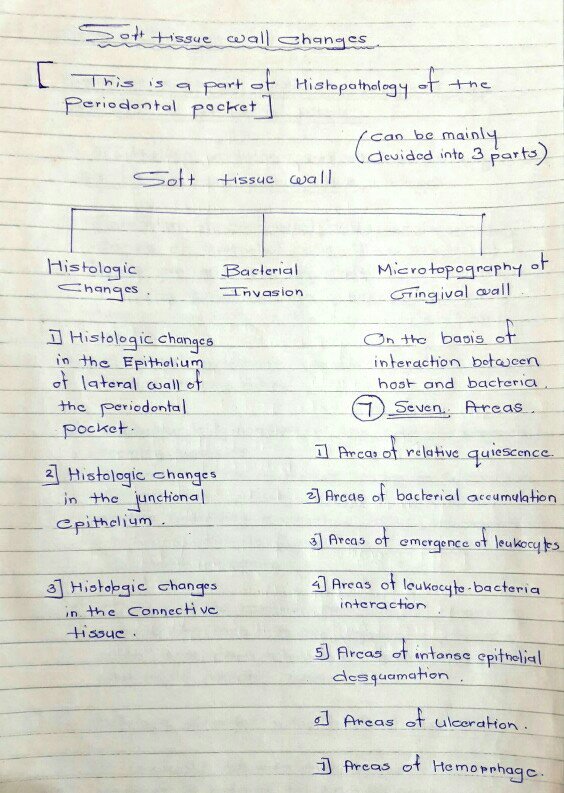 Soft tissue wall changes.
[This is a part of Histopathology of the
Periodontal pocket]
(can be mainly
devided into 3 parts)
Soft tissue wall
Histologic
Changes.
Bacterial
Invasion
Microtopography of
Gingival wall.
1] Histologic changes
in the Epithelium
of lateral wall of
the periodontal
pocket.
2] Histologic changes
in the junctional
epithelium.
3] Histologic changes
in the Connective
tissue.
On the basis of
interaction between
host and bacteria.
7 Seven Areas.
1] Areas of relative quiescence
2] Areas of bacterial accumulation
3] Areas of emergence of leukocytes
4] Areas of leukocyte-bacteria
interaction.
5] Areas of intense epithelial
desquamation.
6] Areas of ulceration.
7] Areas of Hemorrhage.